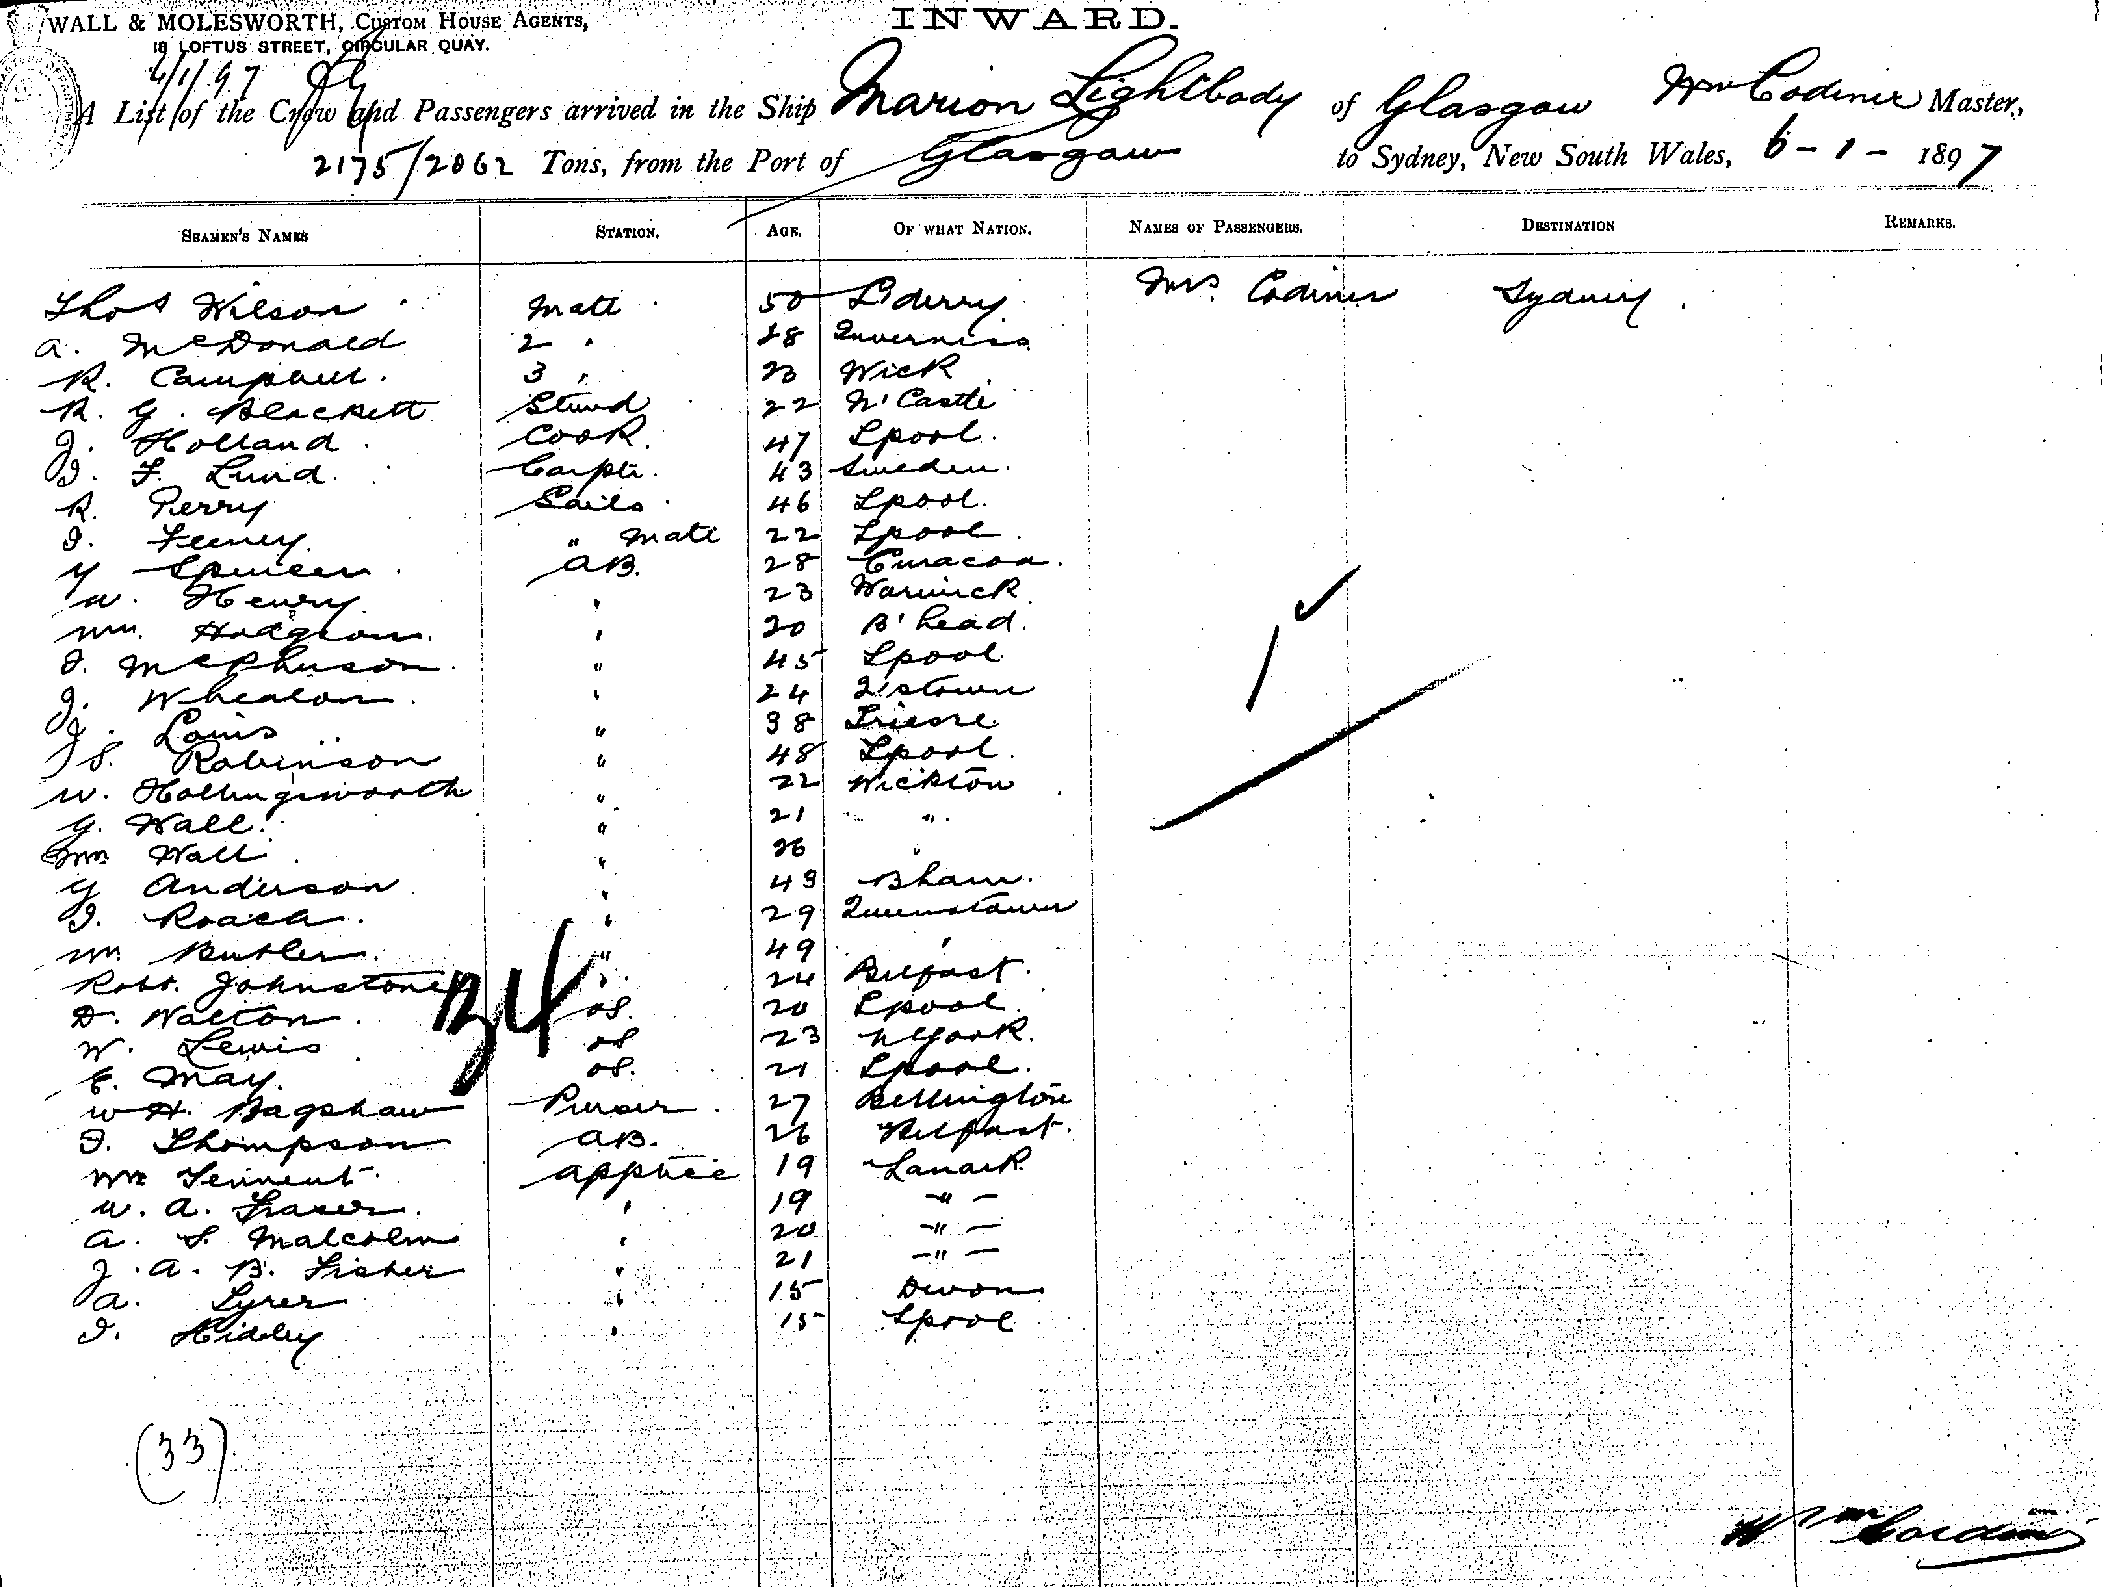 WALL & MOLESWORTH, CUSTOM HOUSE AGENTS,
18 LOFTUS STREET, CIRCULAR QUAY.
INWARD.
6/1/97
A List of the Crew and Passengers arrived in the Ship Marion Lightbody of Glasgow Wm Codiner Master,
2175/2062 Tons, from the Port of Glasgow to Sydney, New South Wales, 6-1-1897
SEAMEN'S NAMES STATION. AGE. OF WHAT NATION. NAMES OF PASSENGERS. DESTINATION REMARKS.
Thos Wilson Mate 50 L'derry Mrs. Codiner Sydney.
A. McDonald 2 " 28 Inverniss
R. Campbell. 3 " 23 Wick
R. G. Blackett Stwd 22 N'Castle
J. Holland Cook 47 Lpool.
J. F. Lund. Carptr. 43 Sweden.
R. Perry Sails 46 Lpool.
J. Feeney " Mate 22 Lpool.
Y Spencer. AB. 28 Curacoa.
W. Henry " 23 Warwick
Wm. Hodgson. " 20 B'head.
J. McPherson. " 45 Lpool
J. Whealon. " 24 Q'stown
J. Louis " 38 Trieste
J S. Robinson " 48 Lpool.
W. Hollingsworth " 22 Wickton
G. Wall. " 21 "
Wm Wall " 26 "
G Anderson " 43 Bham.
J. Roach. " 29 Queenstown
Wm. Butler. " 49 "
Robt. Johnstone " 24 Belfast.
D. Walton. OS. 20 Lpool
W. Lewis OS 23 N York.
E. May. OS. 21 Lpool.
W H. Bagshaw Purser 27 Bellington
J. Thompson AB. 26 Belfast.
Wm Tennent appntce 19 Lanark
W. A. Fraser. " 19 -"-
A. S. Malcolm " 20 -"-
J. A. B. Fisher " 21 -"-
A. Lyrer " 15 Devon
J. Hidley " 15 Lpool
1
34
(33)
Wm Codiner